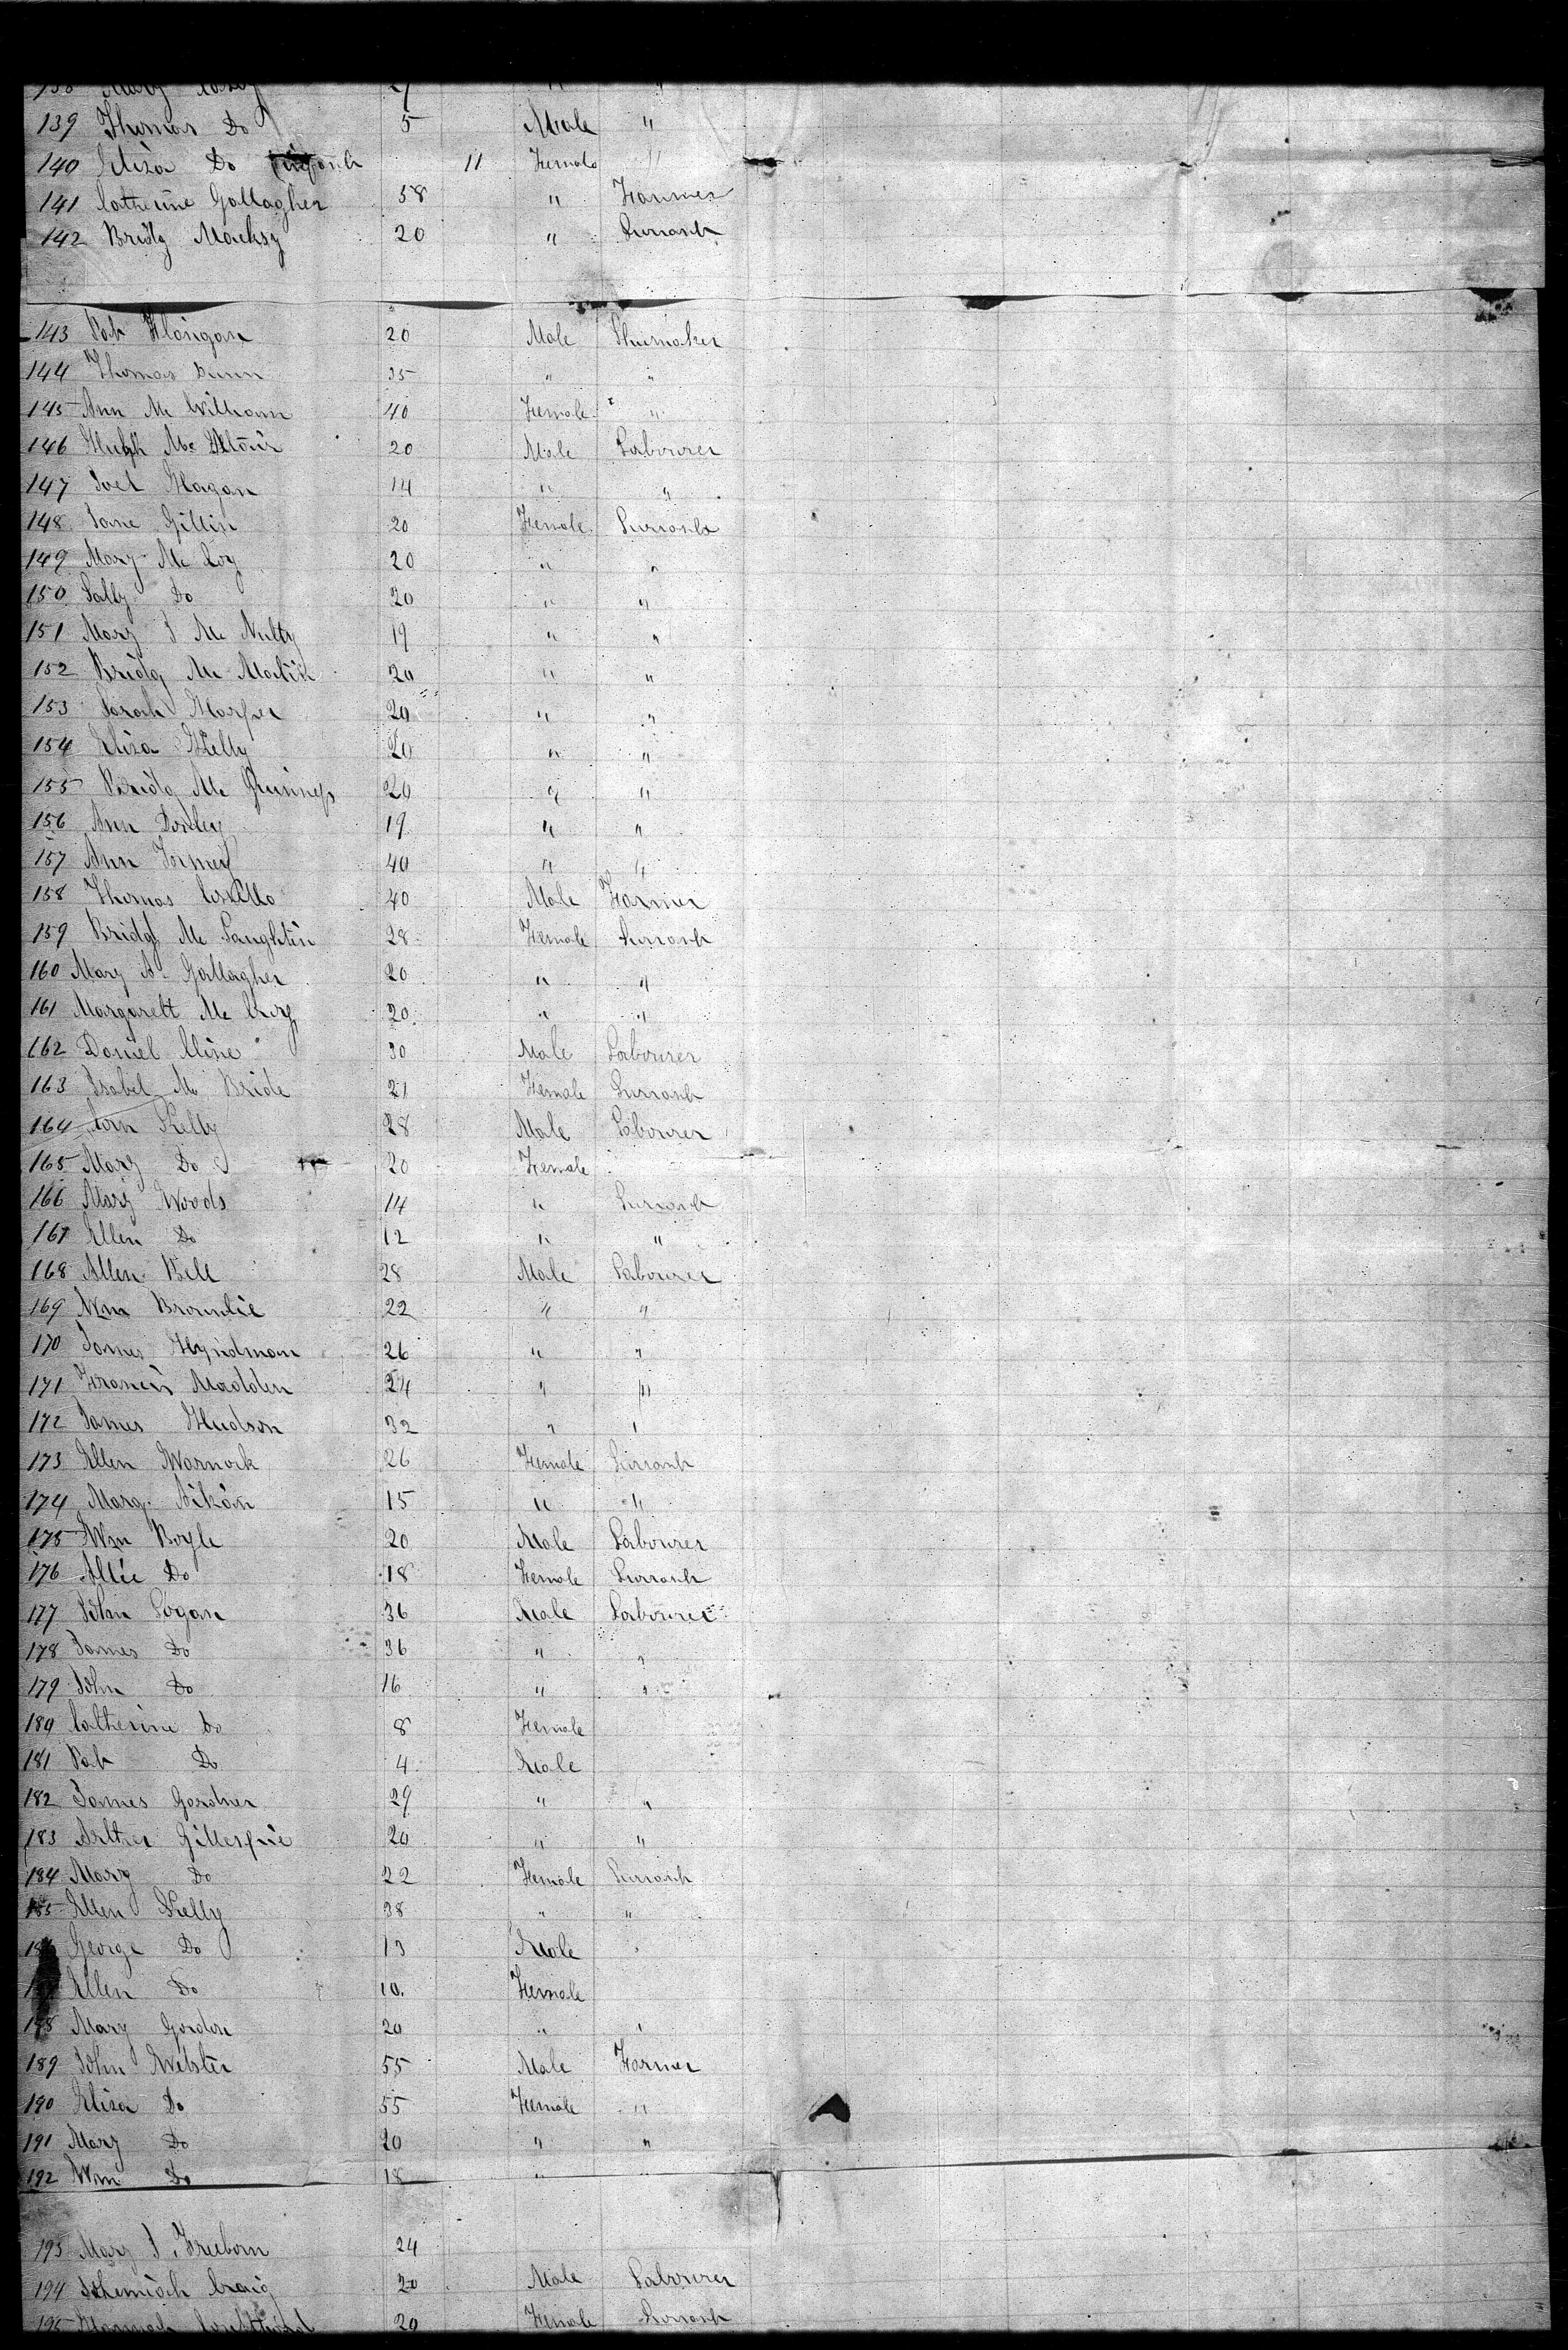 138 Mary
139 Thomas Do 5 Male "
140 Eliza Do Infant 11 Female "
141 Catherine Gallagher 58 " Farmer
142 Bridg 20 " Servant
143 Pat Flanigan 20 Male Shumaker
144 Thomas Dunn 35 " "
145 Ann Mc William 40 Female "
146 Hugh Mc 20 Male Labourer
147 Hagan 14 " "
148 Jane Gillin 20 Female Servant
149 Mary Mc Coy 20 " "
150 Sally Do 20 " "
151 Mary J Mc Nulty 19 " "
152 Bridg Mc 20 " "
153 Sarah Harper 20 " "
154 Eliza Kelly 20 " "
155 Bridg Mc 20 " "
156 Ann 19 " "
157 Ann 40 " "
158 Thomas Costello 40 Male Farmer
159 Bridg Mc Laughlin 28 Female Servant
160 Mary A. Gallagher 20 " "
161 Margarett Mc 20 " "
162 Daniel Cline 30 Male Labourer
163 Isabel Mc Bride 21 Female Servant
164 Kelly 28 Male Labourer
165 Mary Do 20 Female
166 Mary Woods 14 " Servant
167 Ellen Do 12 " "
168 Allen Bell 28 Male Labourer
169 Wm Brownlie 22 " "
170 James Hyndman 26 " "
171 Francis Madden 24 " "
172 James Hudson 32 " "
173 Ellen Warnock 26 Female Servant
174 Marg. Aikin 15 " "
175 Wm Boyle 20 Male Labourer
176 Allie Do 18 Female Servant
177 John Logan 36 Male Labourer
178 James Do 36 " "
179 John Do 16 " "
180 Catherine Do 8 Female
181 Pat Do 4 Male
182 James Gardner 29 " "
183 Arther Gillespie 20 " "
184 Mary Do 22 Female Servant
185 Ellen Kelly 38 " "
186 George Do 13 Male "
Ellen Do 10. Female
188 Mary Gordon 20 " "
189 John Webster 55 Male Farmer
190 Eliza Do 55 Female "
191 Mary Do 20 " "
192 Wm Do 18 " "
193 Mary J. Freeborn 24
194 Craig 20 Male Labourer
195 Hannah 20 Female Servant